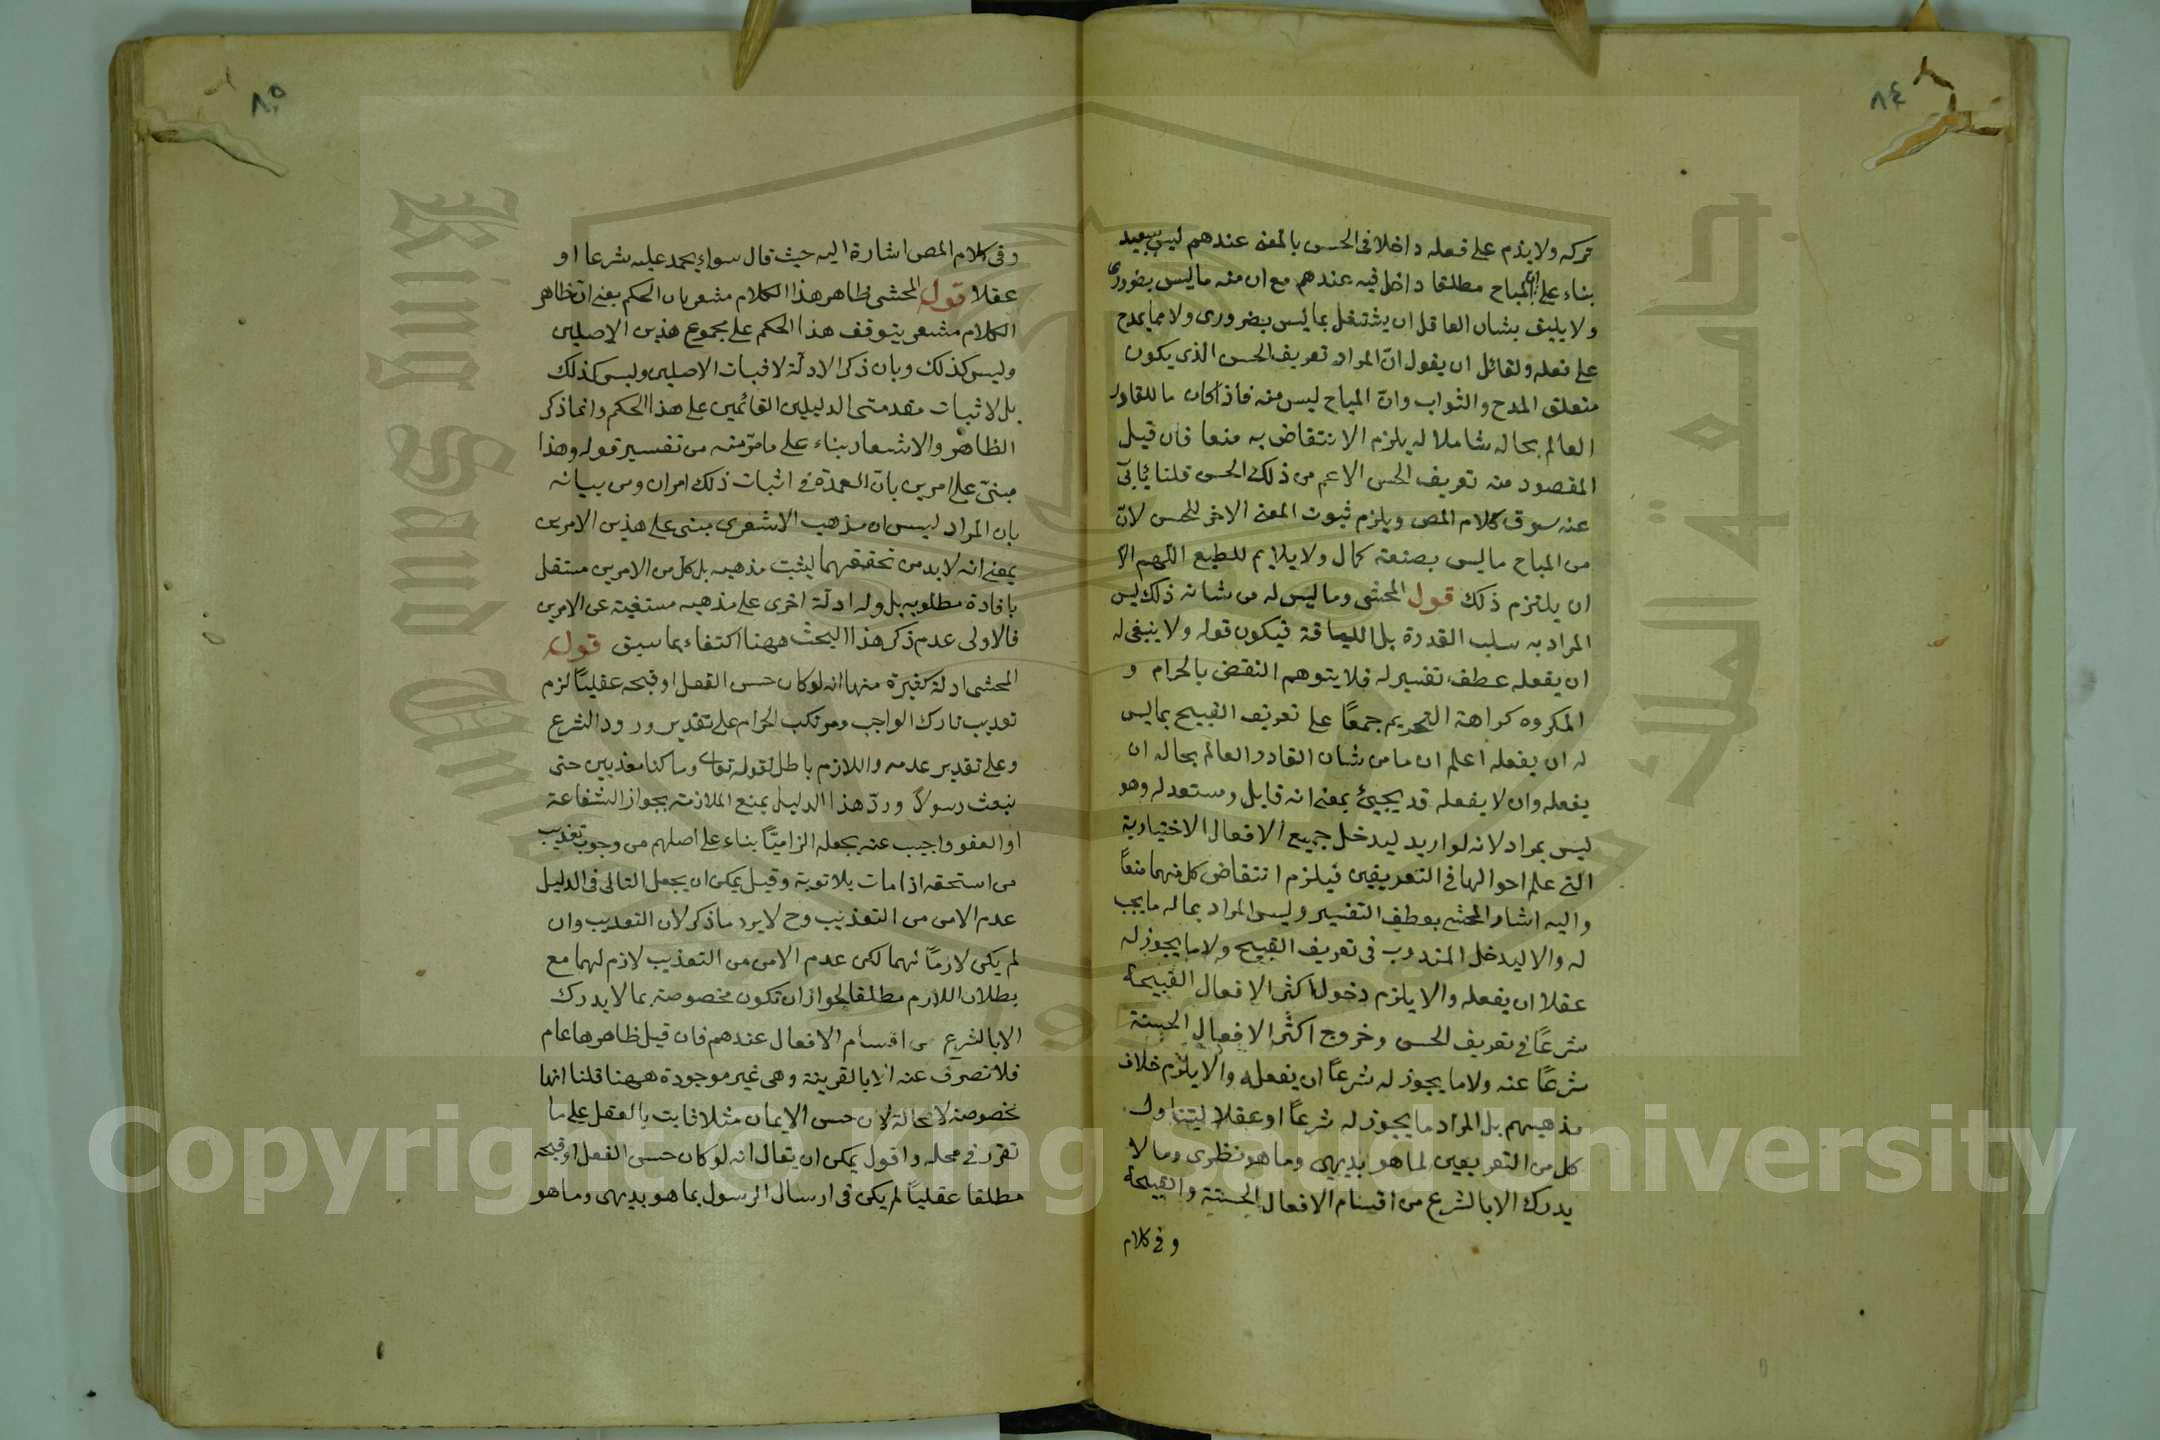 ٨٤
تركه ولا يذم على فعله داخلا فى الحسن بالمعنى عندهم ليس ببعيد
بناء على ان المباح مطلقا داخل فيه عندهم مع ان منه ما ليس بضرورى
ولا يليق بشان العاقل ان يشتغل بما ليس بضرورى ولا مما يمدح
على فعله ولقائل ان يقول انّ المراد تعريف الحسن الذى يكون
متعلق المدح والثواب وانّ المباح ليس منه فاذا كان ما للقادر
العالم بحاله شاملا له يلزم الانتقاض به منعا فان قيل
المقصود منه تعريف الحسن الاعم من ذلك الحسن قلنا يأبى
عنه سوق كلام المص ويلزم ثبوت المعنى الاخر للحسن لانّ
من المباح ما ليس بصنعة كمال ولا يلايم للطبع اللهم الا
ان يلتزم ذلك قوله المحشى وما ليس له من شانه ذلك ليس
المراد به سلب القدرة بل اللياقة فيكون قوله ولا ينبغى له
ان يفعله عطف تفسير له فلا يتوهم النقض بالحرام و
المكروه كراهة التحريم جمعًا على تعريف القبيح بما ليس
له ان يفعله اعلم ان ما من شان القادر العالم بحاله ان
يفعله وان لا يفعله قد يجيئ بمعنى انه قابل ومستعد له وهو
ليس بمراد لانه لو اريد ليدخل جميع الافعال الاختيارية
التى علم احوالها فى التعريفين فيلزم انتقاض كل منهما منعًا
واليه اشار المحشى بعطف التفسير وليس المراد بما له ما يجب
له والا ليدخل المندوب فى تعريف القبيح ولا ما يجوز له
عقلا ان يفعله والا يلزم دخول اكثر الافعال القبيحة
شرعًا فى تعريف الحسن وخروج اكثر الافعال الحسنة
شرعًا عنه ولا ما يجوز له شرعًا ان يفعله والا يلزم خلاف
مذهبهم بل المراد ما يجوز له شرعًا او عقلا ليتناول
كل من التعريفين لما هو بديهى وما هو نظرى وما لا
يدرك الا بالشرع من اقسام الافعال الحسنة والقبيحة
وفى كلام
٨٥
وفى كلام المص اشارة اليه حيث قال سواء يحمد عليه شرعا او
عقلا قوله المحشى ظاهر هذا الكلام مشعر بان الحكم يعنى ان ظاهر
الكلام مشعر بتوقف هذا الحكم على مجموع هذين الاصلين
وليس كذلك وبان ذكر الادلّة لاثبات الاصلين وليس كذلك
بل لاثبات مقدمتى الدليلين القائمين على هذا الحكم وانما ذكر
الظاهر والاشعار بناء على ما مرّ منه من تفسير قوله وهذا
مبنىّ على امرين بانّ العمدة فى اثبات ذلك امران ومن بيانه
بان المراد ليس ان مذهب الاشعرى مبنى على هذين الامرين
بمعنى انه لا بد من تحققهما ليثبت مذهبه بل كل من الامرين مستقل
بافادة مطلوبه بل وله ادلّة اخرى على مذهبه مستغنية عن الامرين
فالاولى عدم ذكر هذا البحث ههنا اكتفاء بما سبق قوله
المحشى ادلة كثيرة منها انه لو كان حسن الفعل او قبحه عقليًا لزم
تعذيب تارك الواجب ومرتكب الحرام على تقدير ورود الشرع
وعلى تقدير عدمه واللازم باطل لقوله تعالى وما كنا معذبين حتى
نبعث رسولاً وردّ هذا الدليل بمنع الملازمة بجواز الشفاعة
او العفو واجيب عنه بجعله الزاميّاً بناء على اصلهم من وجوب تعذيب
من استحقه اذا مات بلا توبة وقيل يمكن ان يجعل التالى فى الدليل
عدم الامن من التعذيب وح لا يرد ما ذكر لان التعذيب وان
لم يكن لازمًا لهما لكن عدم الامن من التعذيب لازم لهما مع
بطلان اللازم مطلقا لجواز ان تكون مخصوصة بما لا يدرك
الا بالشرع من اقسام الافعال عندهم فان قيل ظاهرها عام
فلا تصرف عنه الا بالقرينة وهى غير موجودة ههنا قلنا انها
مخصوصة لا محالة لان حسن الايمان مثلا ثابت بالعقل على ما
تقرّر فى محله واقول يمكن ان يقال انه لو كان حسن الفعل او قبحه
مطلقا عقليًا لم يكن فى ارسال الرسول بما هو بديهى وما هو
King Saud University
جامعة الملك سعود
1957
Copyright © King Saud University